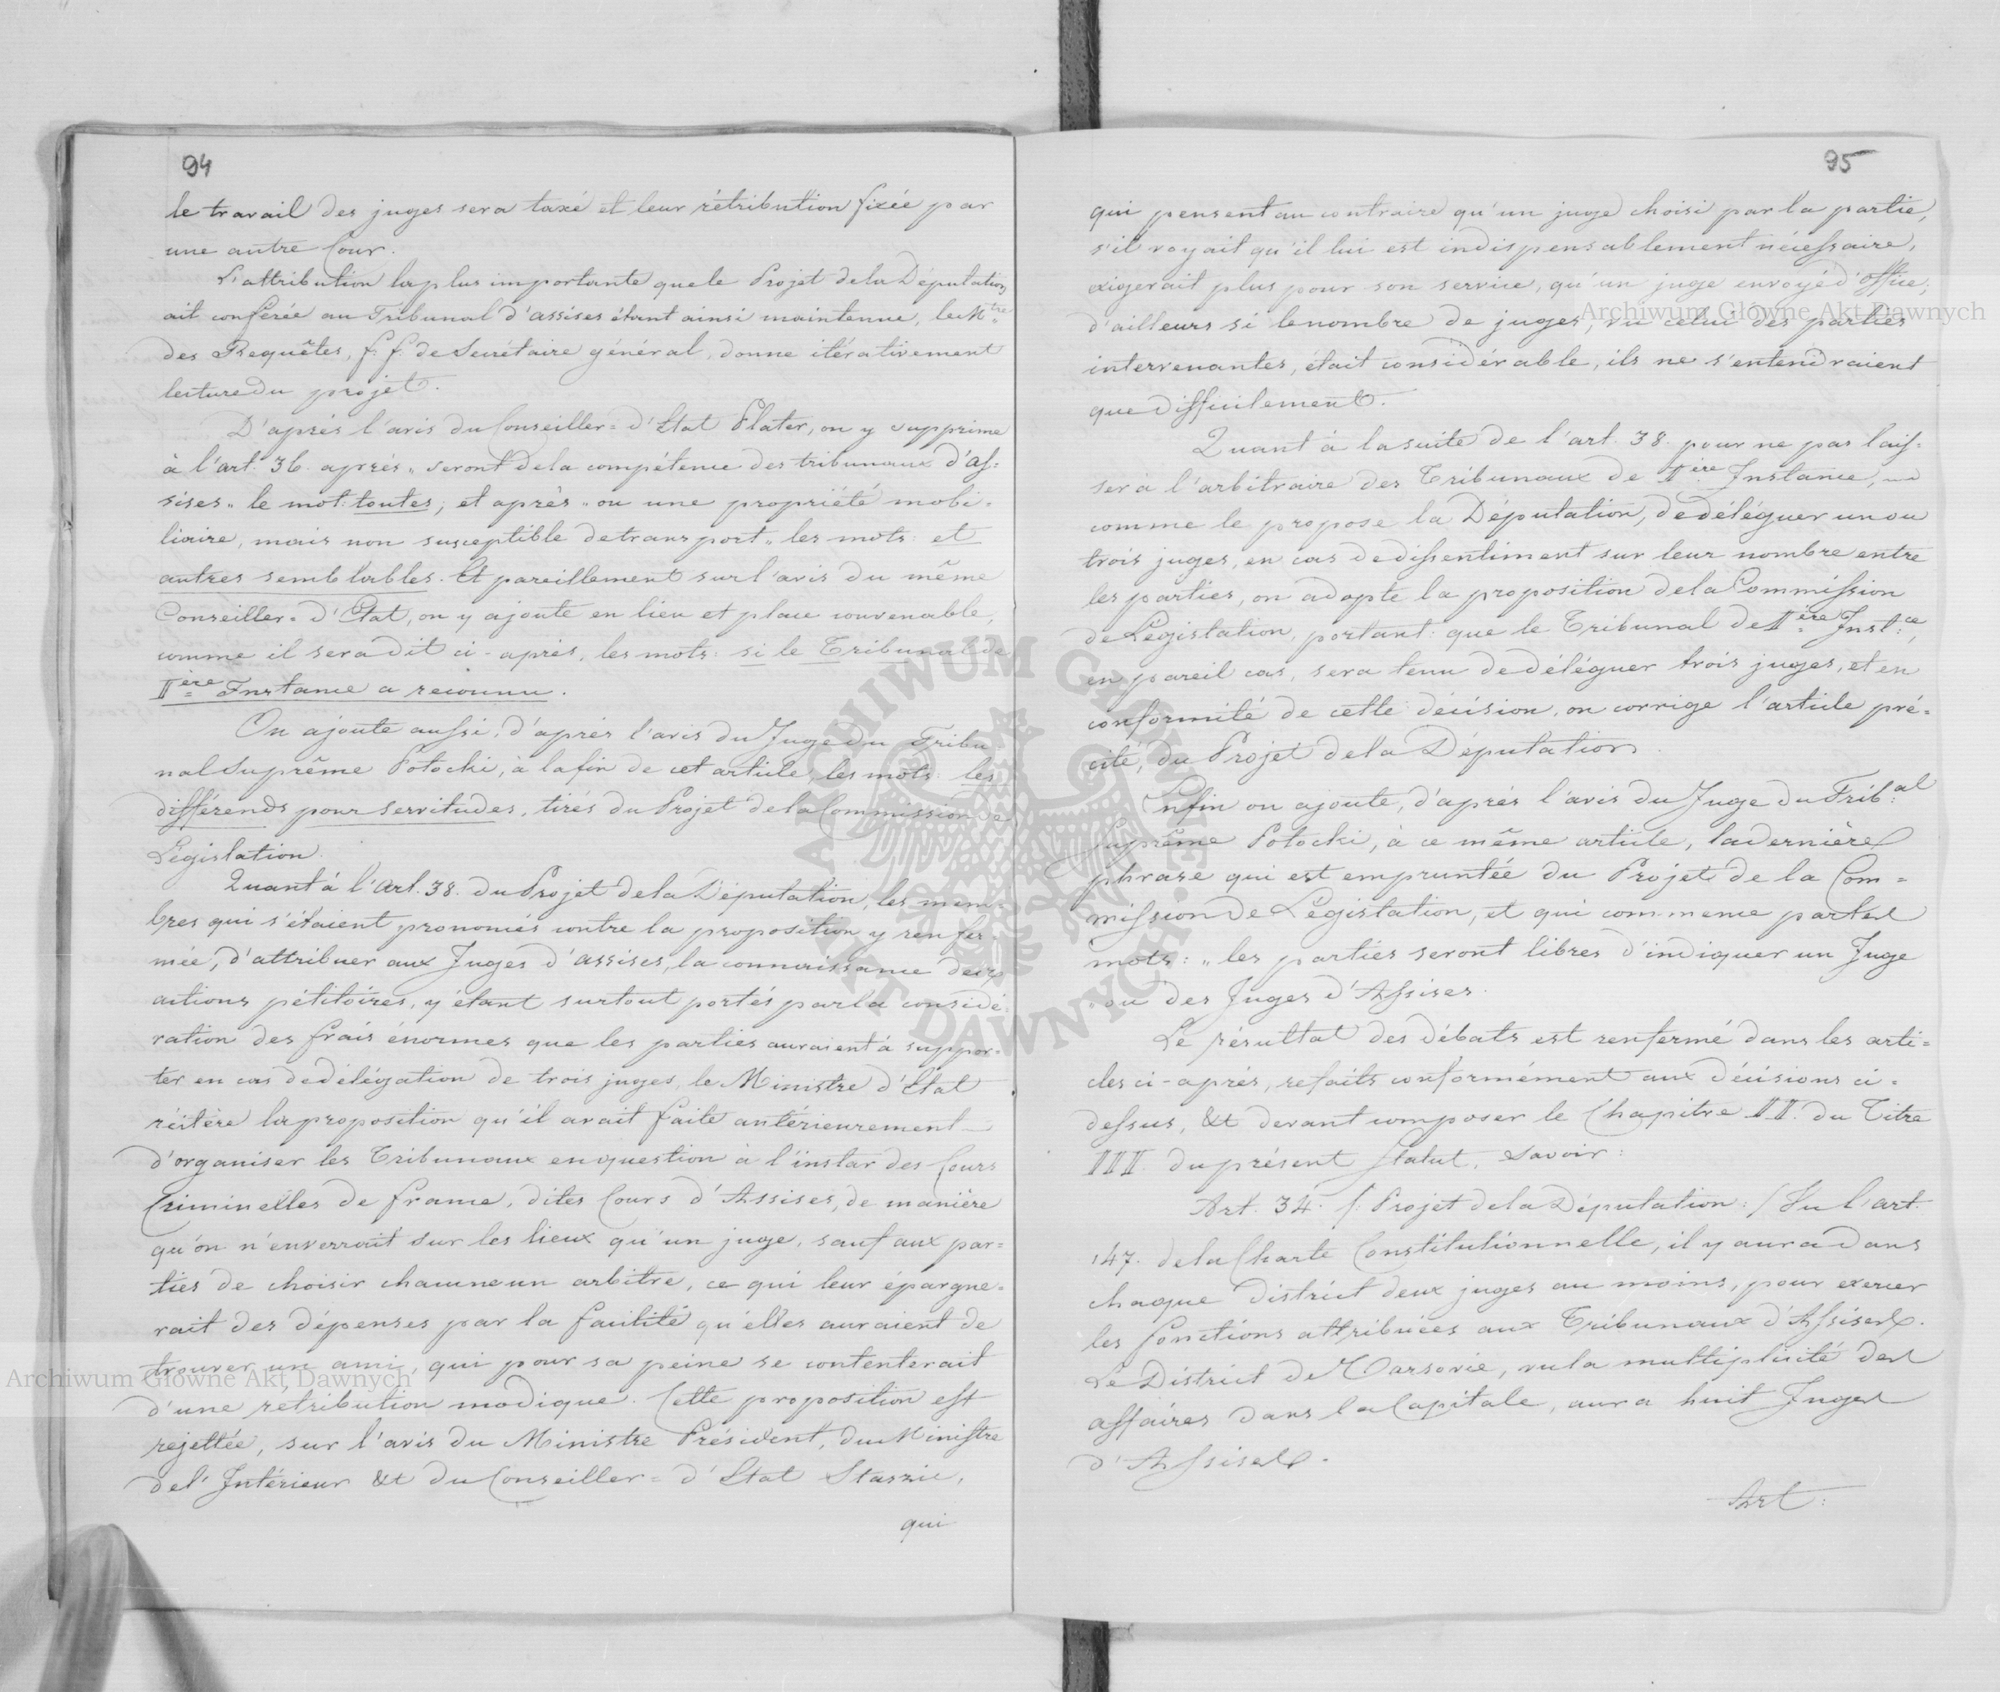 94
le travail des juges sera taxé et leur rétribution fixée par
une autre Cour.
L'attribution la plus importante que le Projet de la Députation
ait conférée au Tribunal d'assises étant ainsi maintenue, le Mtre
des Requêtes, f. f. de Secrétaire général, donne itérativement
lecture du projet.
D'après l'avis du Conseiller = d'Etat Plater, on y supprime
à l'art. 36. après „ seront de la compétence des tribunaux d'As=
sises „ le mot: toutes; et après „ ou une propriété mobi=
liaire, mais non susceptible de transport „ les mots: et
autres semblables. Et pareillement sur l'avis du même
Conseiller = d'Etat, on y ajoute en lieu et place convenable,
comme il sera dit ci-après, les mots: si le Tribunal de
Iere Instance a reconnu.
On ajoute aussi, d'après l'avis du Juge du Tribu
nal Suprême Potocki, à la fin de cet article, les mots: les
différends pour servitudes, tirés du Projet de la Commission de
Législation.
Quant à l'Art. 38. du Projet de la Députation, les mem=
bres qui s'étaient prononcés contre la proposition y renfer=
mée, d'attribuer aux Juges d'assises, la connaissance des
actions pétitoires, y étant surtout portés par la considé=
ration des frais énormes que les parties auraient à suppor=
ter en cas de délégation de trois juges, le Ministre d'Etat
réitère la proposition qu'il avait faite antérieurement
d'organiser les Tribunaux en question à l'instar des Cours
Criminelles de France, dites Cours d'Assises, de manière
qu'on n'enverrait sur les lieux qu'un juge, sauf aux par=
ties de choisir chacune un arbitre, ce qui leur épargne=
rait des dépenses par la facilité qu'elles auraient de
trouver un ami, qui pour sa peine se contenterait
d'une retribution modique. Cette proposition est
rejettée, sur l'avis du Ministre Président, du Ministre
de l'Intérieur &t du Conseiller = d'Etat Staszic,
qui
95
qui pensent au contraire qu'un juge choisi par la partie,
s'il voyait qu'il lui est indispensablement nécessaire,
exigerait plus pour son service, qu'un juge envoyé d'office;
d'ailleurs si le nombre de juges, vu celui des parties
intervenantes, était considérable, ils ne s'entendraient
que difficilement.
Quant à la suite de l'art. 38. pour ne pas lais=
ser à l'arbitraire des Tribunaux de Iere Instance,
comme le propose la Députation, de déléguer un ou
trois juges, en cas de dissentiment sur leur nombre entre
les parties, on adopte la proposition de la Commission
de Législation, portant: que le Tribunal de Iere Inst:ce,
en pareil cas, sera tenu de déléguer trois juges, et en
conformité de cette décision, on corrige l'article pré=
cité, du Projet de la Députation.
Enfin on ajoute, d'après l'avis du Juge du Trib:al
Suprême Potocki, à ce même article, la dernière
phrase qui est empruntée du Projet de la Com=
mission de Législation, et qui commence par les
mots: „ les parties seront libres d'indiquer un Juge
„ ou des Juges d'Assises.
Le résultat des débats est renfermé dans les arti=
cles ci-après, refaits conformément aux décisions ci=
dessus, &t devant composer le Chapitre II. du Titre
III. du présent Statut, savoir:
Art. 34. /: Projet de la Députation :/ Vu l'art.
147. de la Charte Constitutionnelle, il y aura dans
chaque District deux juges au moins, pour exercer
les fonctions attribuées aux Tribunaux d'Assises.
Le District de Varsovie, vu la multiplicité des
affaires dans la Capitale, aura huit Juges
d'Assises.
Art:
Archiwum Główne Akt Dawnych
Archiwum Główne Akt Dawnych
ARCHIWUM GŁÓWNE AKT DAWNYCH